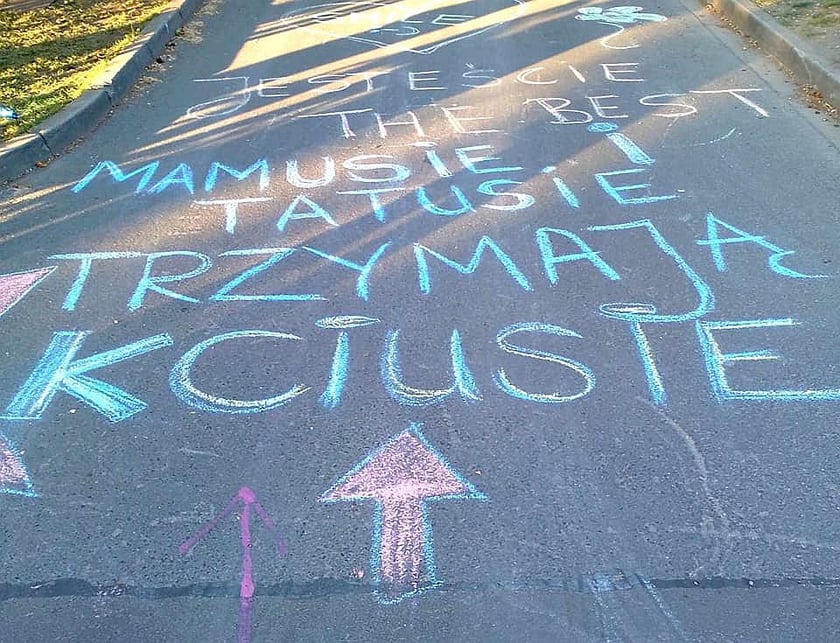 JESTEŚCIE
THE BEST
MAMUSiE i
TATUSiE
TRZYMAJĄ
KCiUSiE